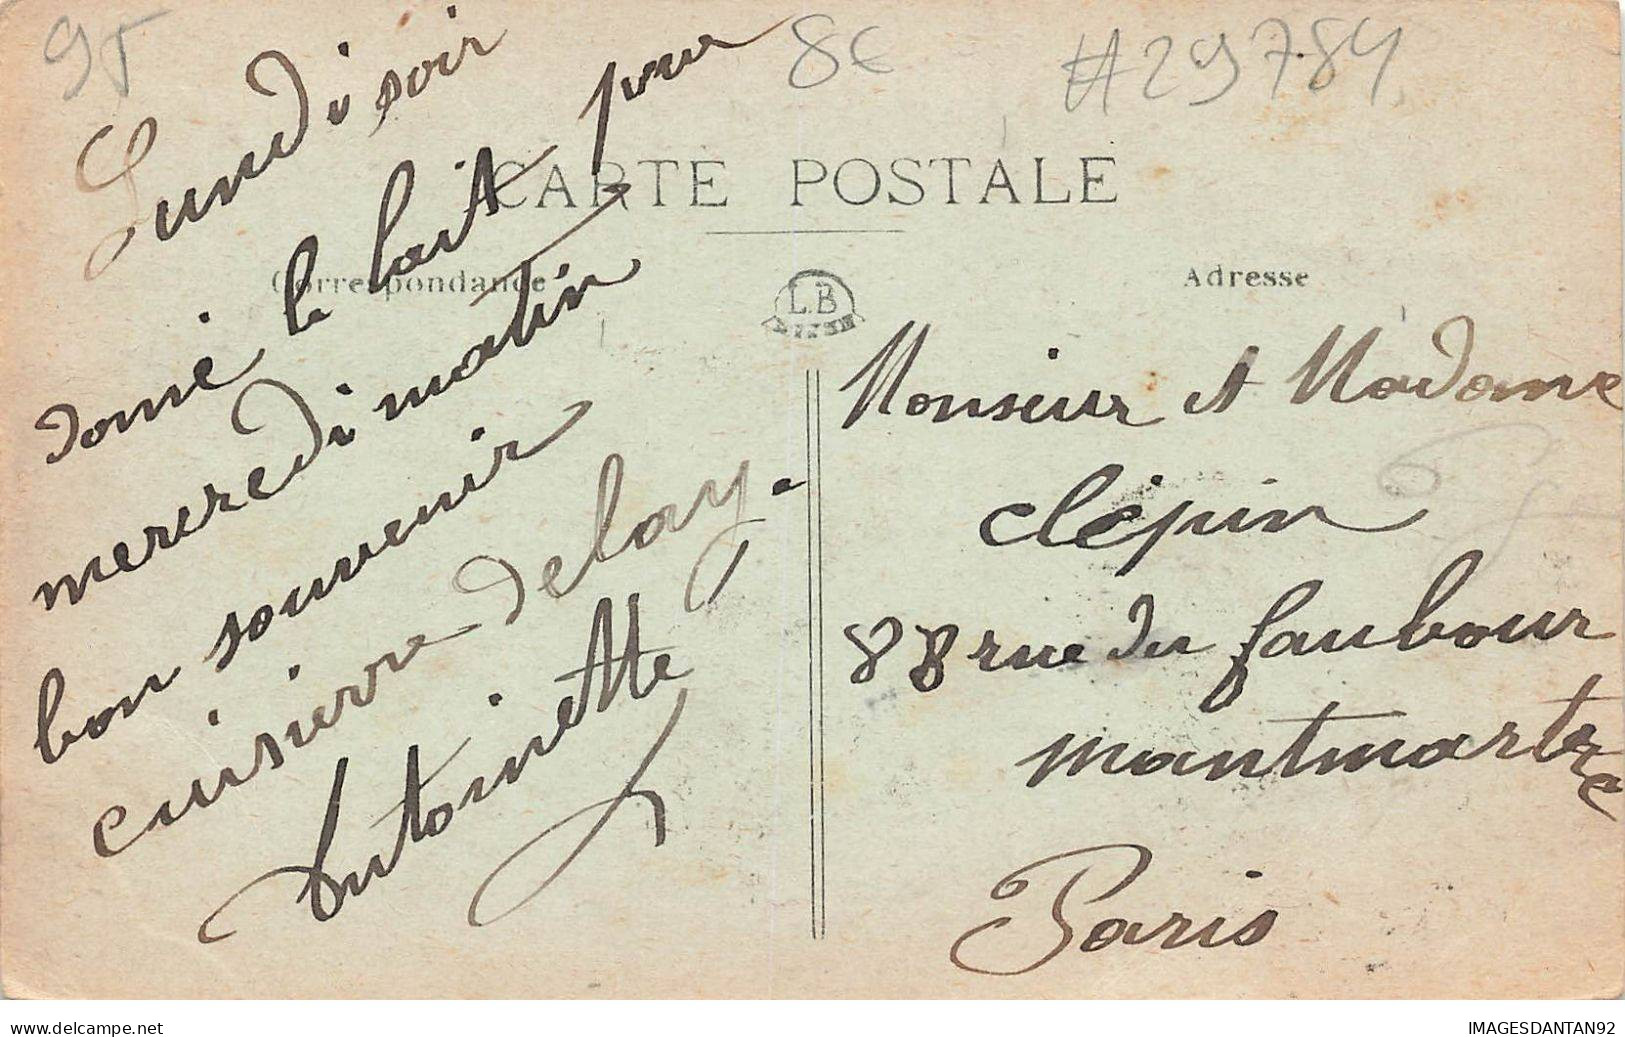 95
8€
#29784
CARTE POSTALE
Correspondance
Adresse
LB
Lundi soir
donné le lait pour
mercredi matin
bon souvenir
delay.
Antoinette
Monsieur et Madame
clépin
88 rue du faubour
montmartre
Paris
delcampe.net
IMAGESDANTAN92